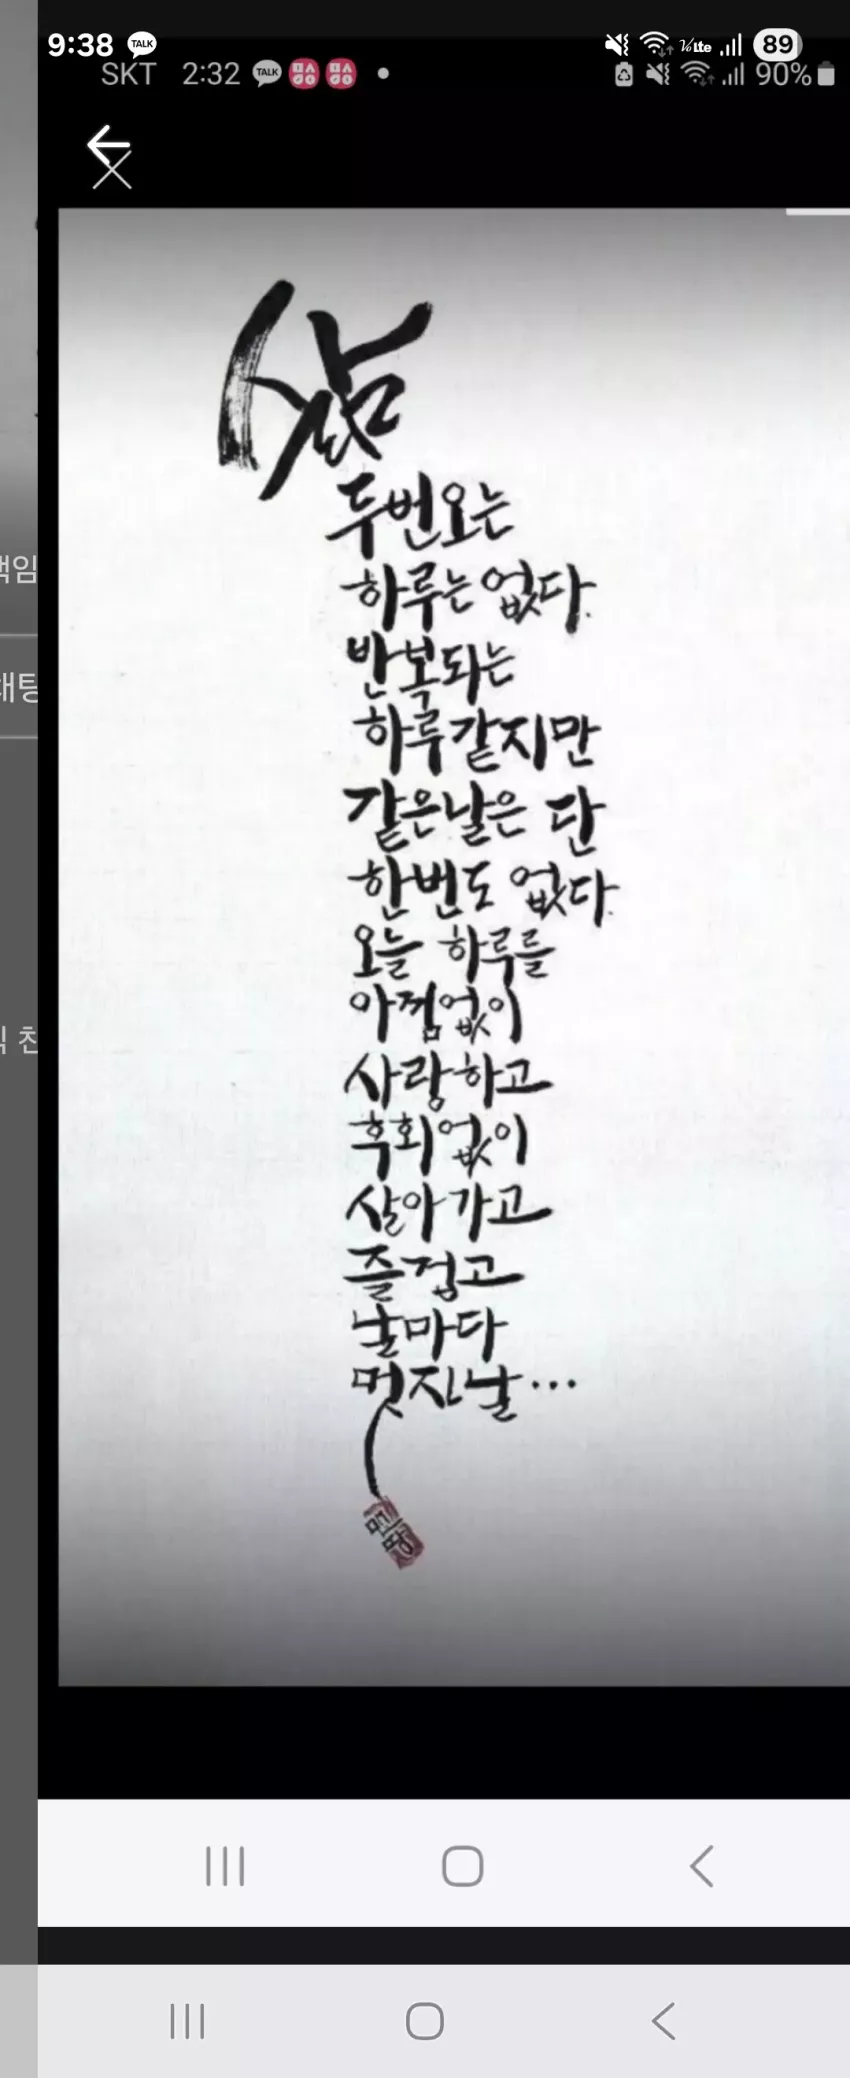 9:38 TALK VoLTE 89
SKT 2:32 TALK 90%
삶
두번오는
하루는 없다.
반복되는
하루 같지만
같은날은 단
한번도 없다.
오늘 하루를
아낌없이
사랑하고
후회없이
살아가고
즐겁고
날마다
멋진날...
책임
채팅
친